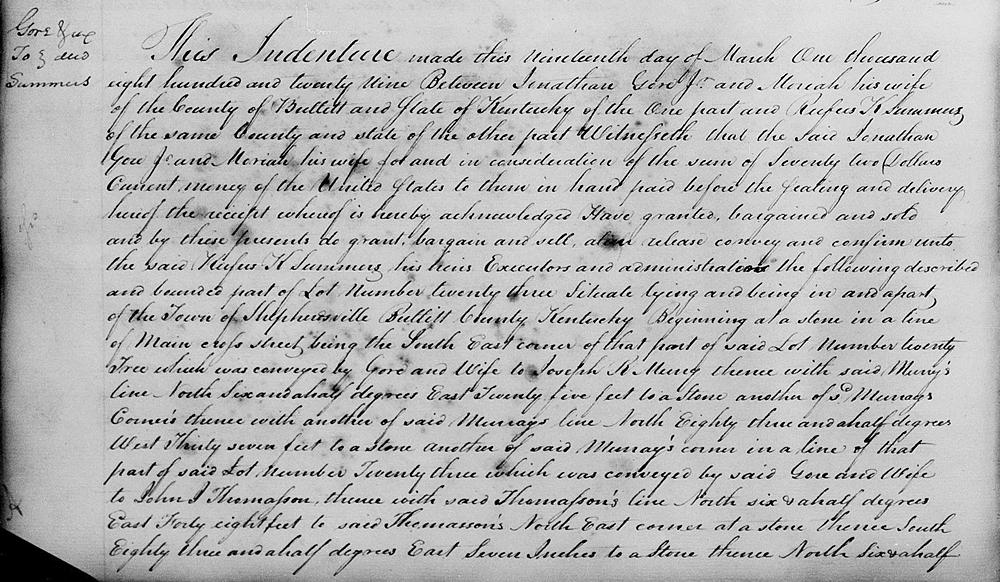 Gore & ux
To } deed
Summers
This Indenture made this nineteenth day of March One thousand
eight hundred and twenty Nine Between Jonathan Gore Jr. and Moriah his wife
of the County of Bullitt and State of Kentucky of the One part and Rufus K Summers
of the same County and state of the other part Witnesseth that the Said Jonathan
Gore Jr and Moriah his wife for and in consideration of the sum of Seventy two Dollars
Current money of the United States to them in hand paid before the Sealing and delivery
hereof the receipt whereof is hereby acknowledged Have granted, bargained and sold
and by these presents do grant, bargain and sell, alien release convey and confirm unto
the said Rufus K Summers his heirs Executors and administrators the following described
and bounded part of Lot Number twenty three Situate lying and being in and apart
of the Town of Shephersville Bullitt County Kentucky Beginning at a stone in a line
of Main cross street, being the South East corner of that part of said Lot Number twenty
Tree which was conveyed by Gore and Wife to Joseph K Murry thence with said Murry's
line North Six and a half degrees East Twenty five feet to a Stone another of sd Murray's
Corners thence with another of said Murray's line North Eighty three and ahalf degrees
West Thirty seven feet to a Stone another of said Murray's corner in a line of that
part of said Lot Number Twenty three which was conveyed by said Gore and Wife
to John J Thomasson, thence with said Thomasson's line North six & ahalf degrees
East Forty eight feet to said Thomasson's North East corner at a stone thence South
Eighty three and ahalf degrees East Seven Inches to a Stone thence North Six & ahalf